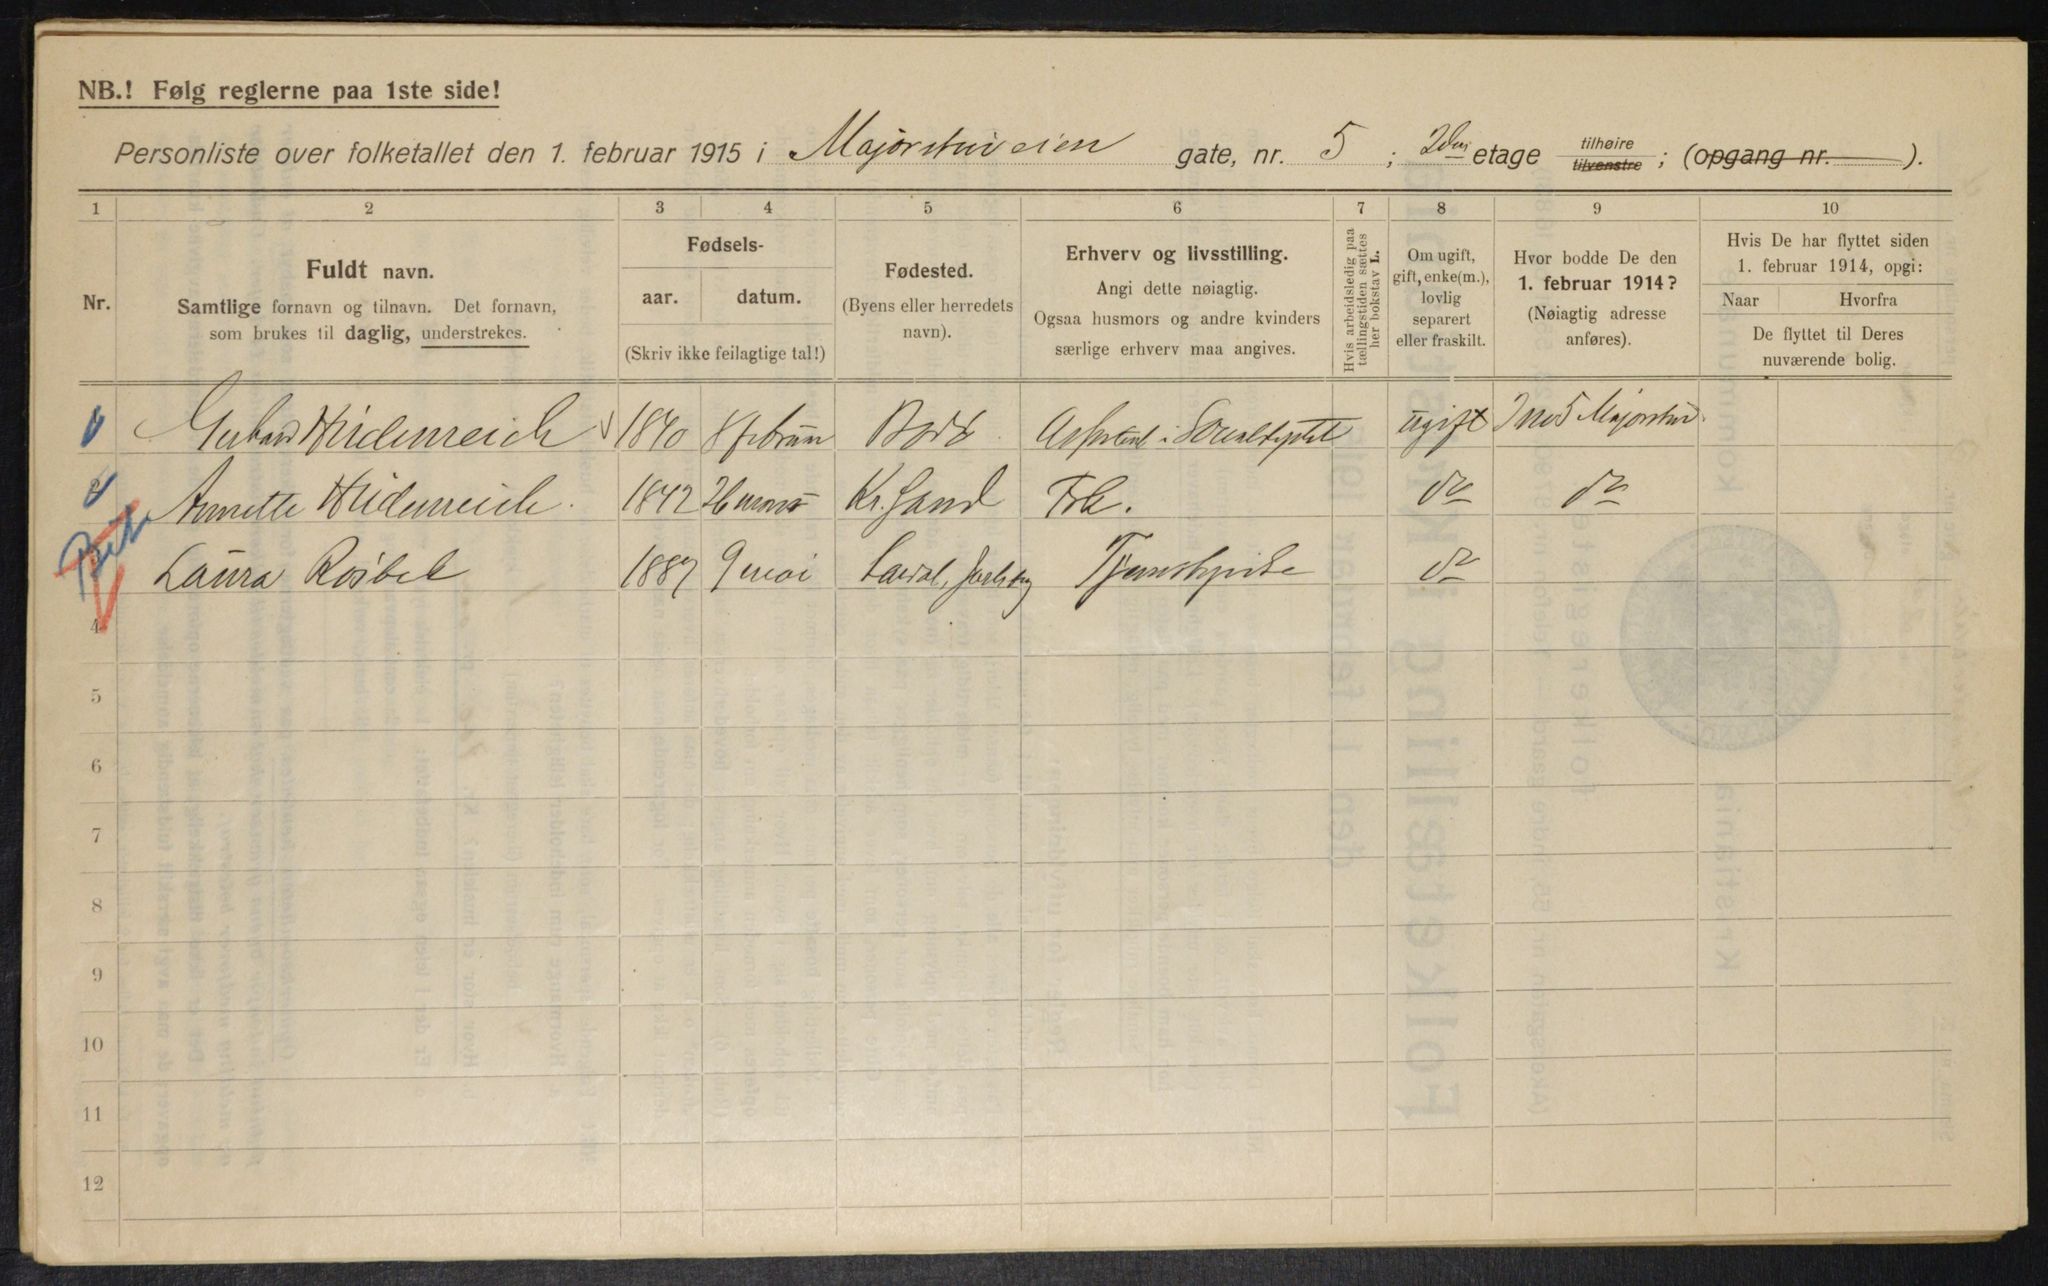 NB.! Følg reglerne paa 1ste side!
Personliste over folketallet den 1. februar 1915 i Majorstuveien gate, nr. 5 ; 2den etage tilhøire tilvenstre ; (opgang nr. ).
1 2 3 4 5 6 7 8 9 10
Nr.
Fuldt navn.
Samtlige fornavn og tilnavn. Det fornavn,
som brukes til daglig, understrekes.
Fødsels-
aar. datum.
(Skriv ikke feilagtige tal!)
Fødested.
(Byens eller herredets
navn).
Erhverv og livsstilling.
Angi dette nøiagtig.
Ogsaa husmors og andre kvinders
særlige erhverv maa angives.
Hvis arbeidsledig paa
tællingstiden sættes
her bokstav L.
Om ugift,
gift, enke(m.),
lovlig
separert
eller fraskilt.
Hvor bodde De den
1. februar 1914?
(Nøiagtig adresse
anføres).
Hvis De har flyttet siden
1. februar 1914, opgi:
Naar Hvorfra
De flyttet til Deres
nuværende bolig.
Gerhard Heidenreich 1840 8 februar Bodø ugift No 5 Majorstuv.
Annette Heidenreich. 1842 26 Kr.sand Frk. do do
Laura Roibek 1887 9 mai Lardal, Jarlsberg Tjenestepike do
4
5
6
7
8
9
10
11
12